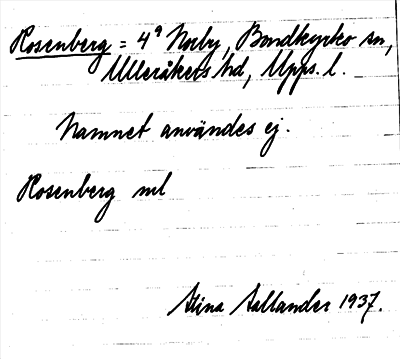 Rosenberg = 4⁹ Norby, Bondkyrko sn,
Ulleråkers hd, Upps. l.
Namnet användes ej.
Rosenberg ml
Stina Hallander 1937.